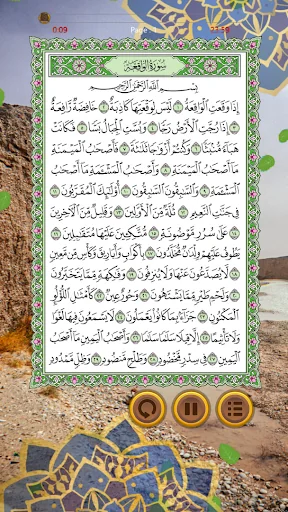 0:09
Page
سُورَةُ الْوَاقِعَةِ
بِسْمِ ٱللَّهِ ٱلرَّحْمَٰنِ ٱلرَّحِيمِ
إِذَا وَقَعَتِ ٱلْوَاقِعَةُ ١ لَيْسَ لِوَقْعَتِهَا كَاذِبَةٌ ٢ خَافِضَةٌ رَّافِعَةٌ
٣ إِذَا رُجَّتِ ٱلْأَرْضُ رَجًّا ٤ وَبُسَّتِ ٱلْجِبَالُ بَسًّا ٥ فَكَانَتْ
هَبَآءً مُّنۢبَثًّا ٦ وَكُنتُمْ أَزْوَٰجًا ثَلَٰثَةً ٧ فَأَصْحَٰبُ ٱلْمَيْمَنَةِ
مَآ أَصْحَٰبُ ٱلْمَيْمَنَةِ ٨ وَأَصْحَٰبُ ٱلْمَشْـَٔمَةِ مَآ أَصْحَٰبُ
ٱلْمَشْـَٔمَةِ ٩ وَٱلسَّٰبِقُونَ ٱلسَّٰبِقُونَ ١٠ أُو۟لَٰٓئِكَ ٱلْمُقَرَّبُونَ ١١
فِى جَنَّٰتِ ٱلنَّعِيمِ ١٢ ثُلَّةٌ مِّنَ ٱلْأَوَّلِينَ ١٣ وَقَلِيلٌ مِّنَ ٱلْءَاخِرِينَ
١٤ عَلَىٰ سُرُرٍ مَّوْضُونَةٍ ١٥ مُّتَّكِـِٔينَ عَلَيْهَا مُتَقَٰبِلِينَ ١٦
يَطُوفُ عَلَيْهِمْ وِلْدَٰنٌ مُّخَلَّدُونَ ١٧ بِأَكْوَابٍ وَأَبَارِيقَ وَكَأْسٍ مِّن مَّعِينٍ
١٨ لَّا يُصَدَّعُونَ عَنْهَا وَلَا يُنزِفُونَ ١٩ وَفَٰكِهَةٍ مِّمَّا يَتَخَيَّرُونَ
٢٠ وَلَحْمِ طَيْرٍ مِّمَّا يَشْتَهُونَ ٢١ وَحُورٌ عِينٌ ٢٢ كَأَمْثَٰلِ ٱللُّؤْلُؤِ
ٱلْمَكْنُونِ ٢٣ جَزَآءًۢ بِمَا كَانُوا۟ يَعْمَلُونَ ٢٤ لَا يَسْمَعُونَ فِيهَا لَغْوًا
وَلَا تَأْثِيمًا ٢٥ إِلَّا قِيلًا سَلَٰمًا سَلَٰمًا ٢٦ وَأَصْحَٰبُ ٱلْيَمِينِ مَآ أَصْحَٰبُ
ٱلْيَمِينِ ٢٧ فِى سِدْرٍ مَّخْضُودٍ ٢٨ وَطَلْحٍ مَّنضُودٍ ٢٩ وَظِلٍّ مَّمْدُودٍ